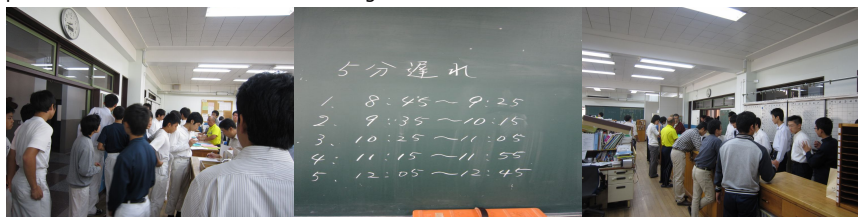 5分遅れ
1. 8:45〜9:25
2. 9:35〜10:15
3. 10:25〜11:05
4. 11:15〜11:55
5. 12:05〜12:45